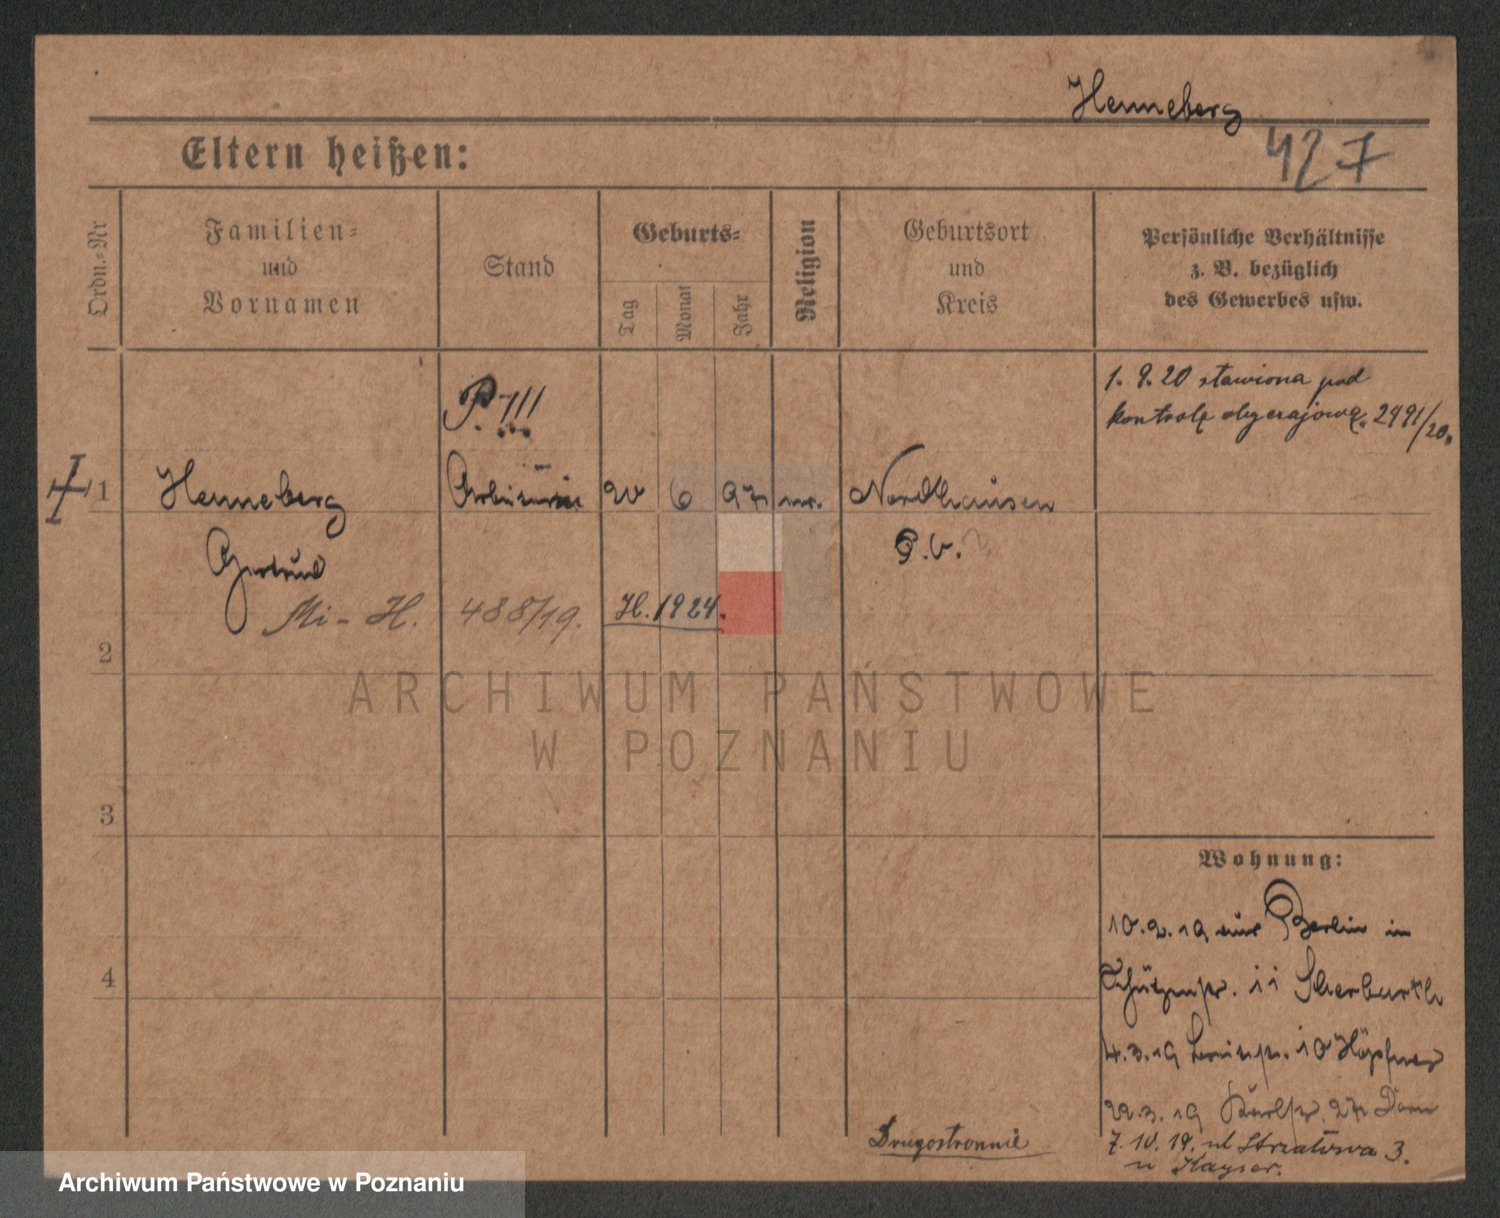 Henneberg
427
Eltern heißen:
Ordn.-Nr
Familien-
und
Vornamen
Stand
Geburts-
Tag
Monat
Jahr
Religion
Geburtsort
und
Kreis
Persönliche Verhältnisse
z. B. bezüglich
des Gewerbes usw.
P. III
1. 9. 20 stawiona pod
kontrolę obyczajową. 2491/20.
1 Henneberg Arbeiterin 20 6 97 Nordhausen
Gertrud
Mi - H. 488/19. H. 1924.
2
ARCHIWUM PAŃSTWOWE
W POZNANIU
3
4
Wohnung:
10.2.19 aus Berlin in
Schützenstr. 11 Scherbarth
4.3.19 10 Höpfner
22.3.19 Karlstr. 27 Dorn
7. 10. 19. ul Strzałowa 3.
u Kayser.
Drugostronnie
Archiwum Państwowe w Poznaniu